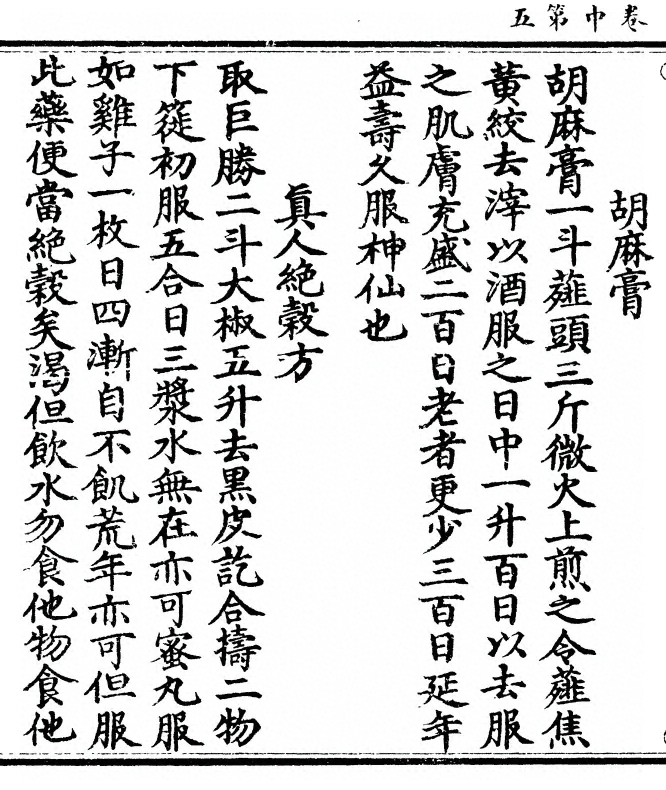 卷中第五
胡麻膏
胡麻膏一斗薤頭三斤微火上煎之令薤焦
黃絞去滓以酒服之日中一升百日以去服
之肌膚充盛二百日老者更少三百日延年
益壽久服神仙也
真人絕穀方
取巨勝二斗大椒五升去黑皮訖合擣二物
下簁初服五合日三漿水無在亦可蜜丸服
如雞子一枚日四漸自不飢荒年亦可但服
此藥便當絕穀矣渴但飲水勿食他物食他